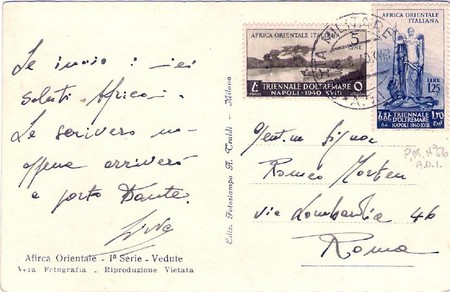 Le invio i miei
saluti Africani.
Le scriverò no-
appena arriverò
a porto Dante.
Afirca Orientale - Iª Serie - Vedute
Vera Fotografia - Riproduzione Vietata
Ediz. Fotostampa A. Traldi - Milano
AFRICA ORIENTALE ITALIANA
5
CENT
TRIENNALE D'OLTREMARE
NAPOLI - 1940 XVIII
AFRICA ORIENTALE
ITALIANA
LIRE
1,25
TRIENNALE D'OLTREMARE
NAPOLI 1940 XVIII
Gent.mo Signor
Romeo
via Lombardia 46
Roma